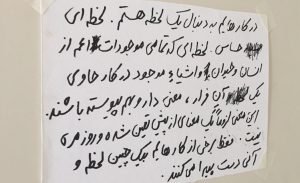 در کارهایم به دنبال یک لحظه هستم. لحظه ای
حساس. لحظه‌ای که تمامی موجودات اعم از
انسان و حیوان و اشیاء موجود در کار حاوی
یک آن قرار، معنی دار و بهم پیوسته باشند.
این معنی لزوماً یک معنای از پیش تعیین شده و روزمره
نیست. فقط برخی از کارهایم به یک چنین لحظه و
آنی دست پیدا می کنند.